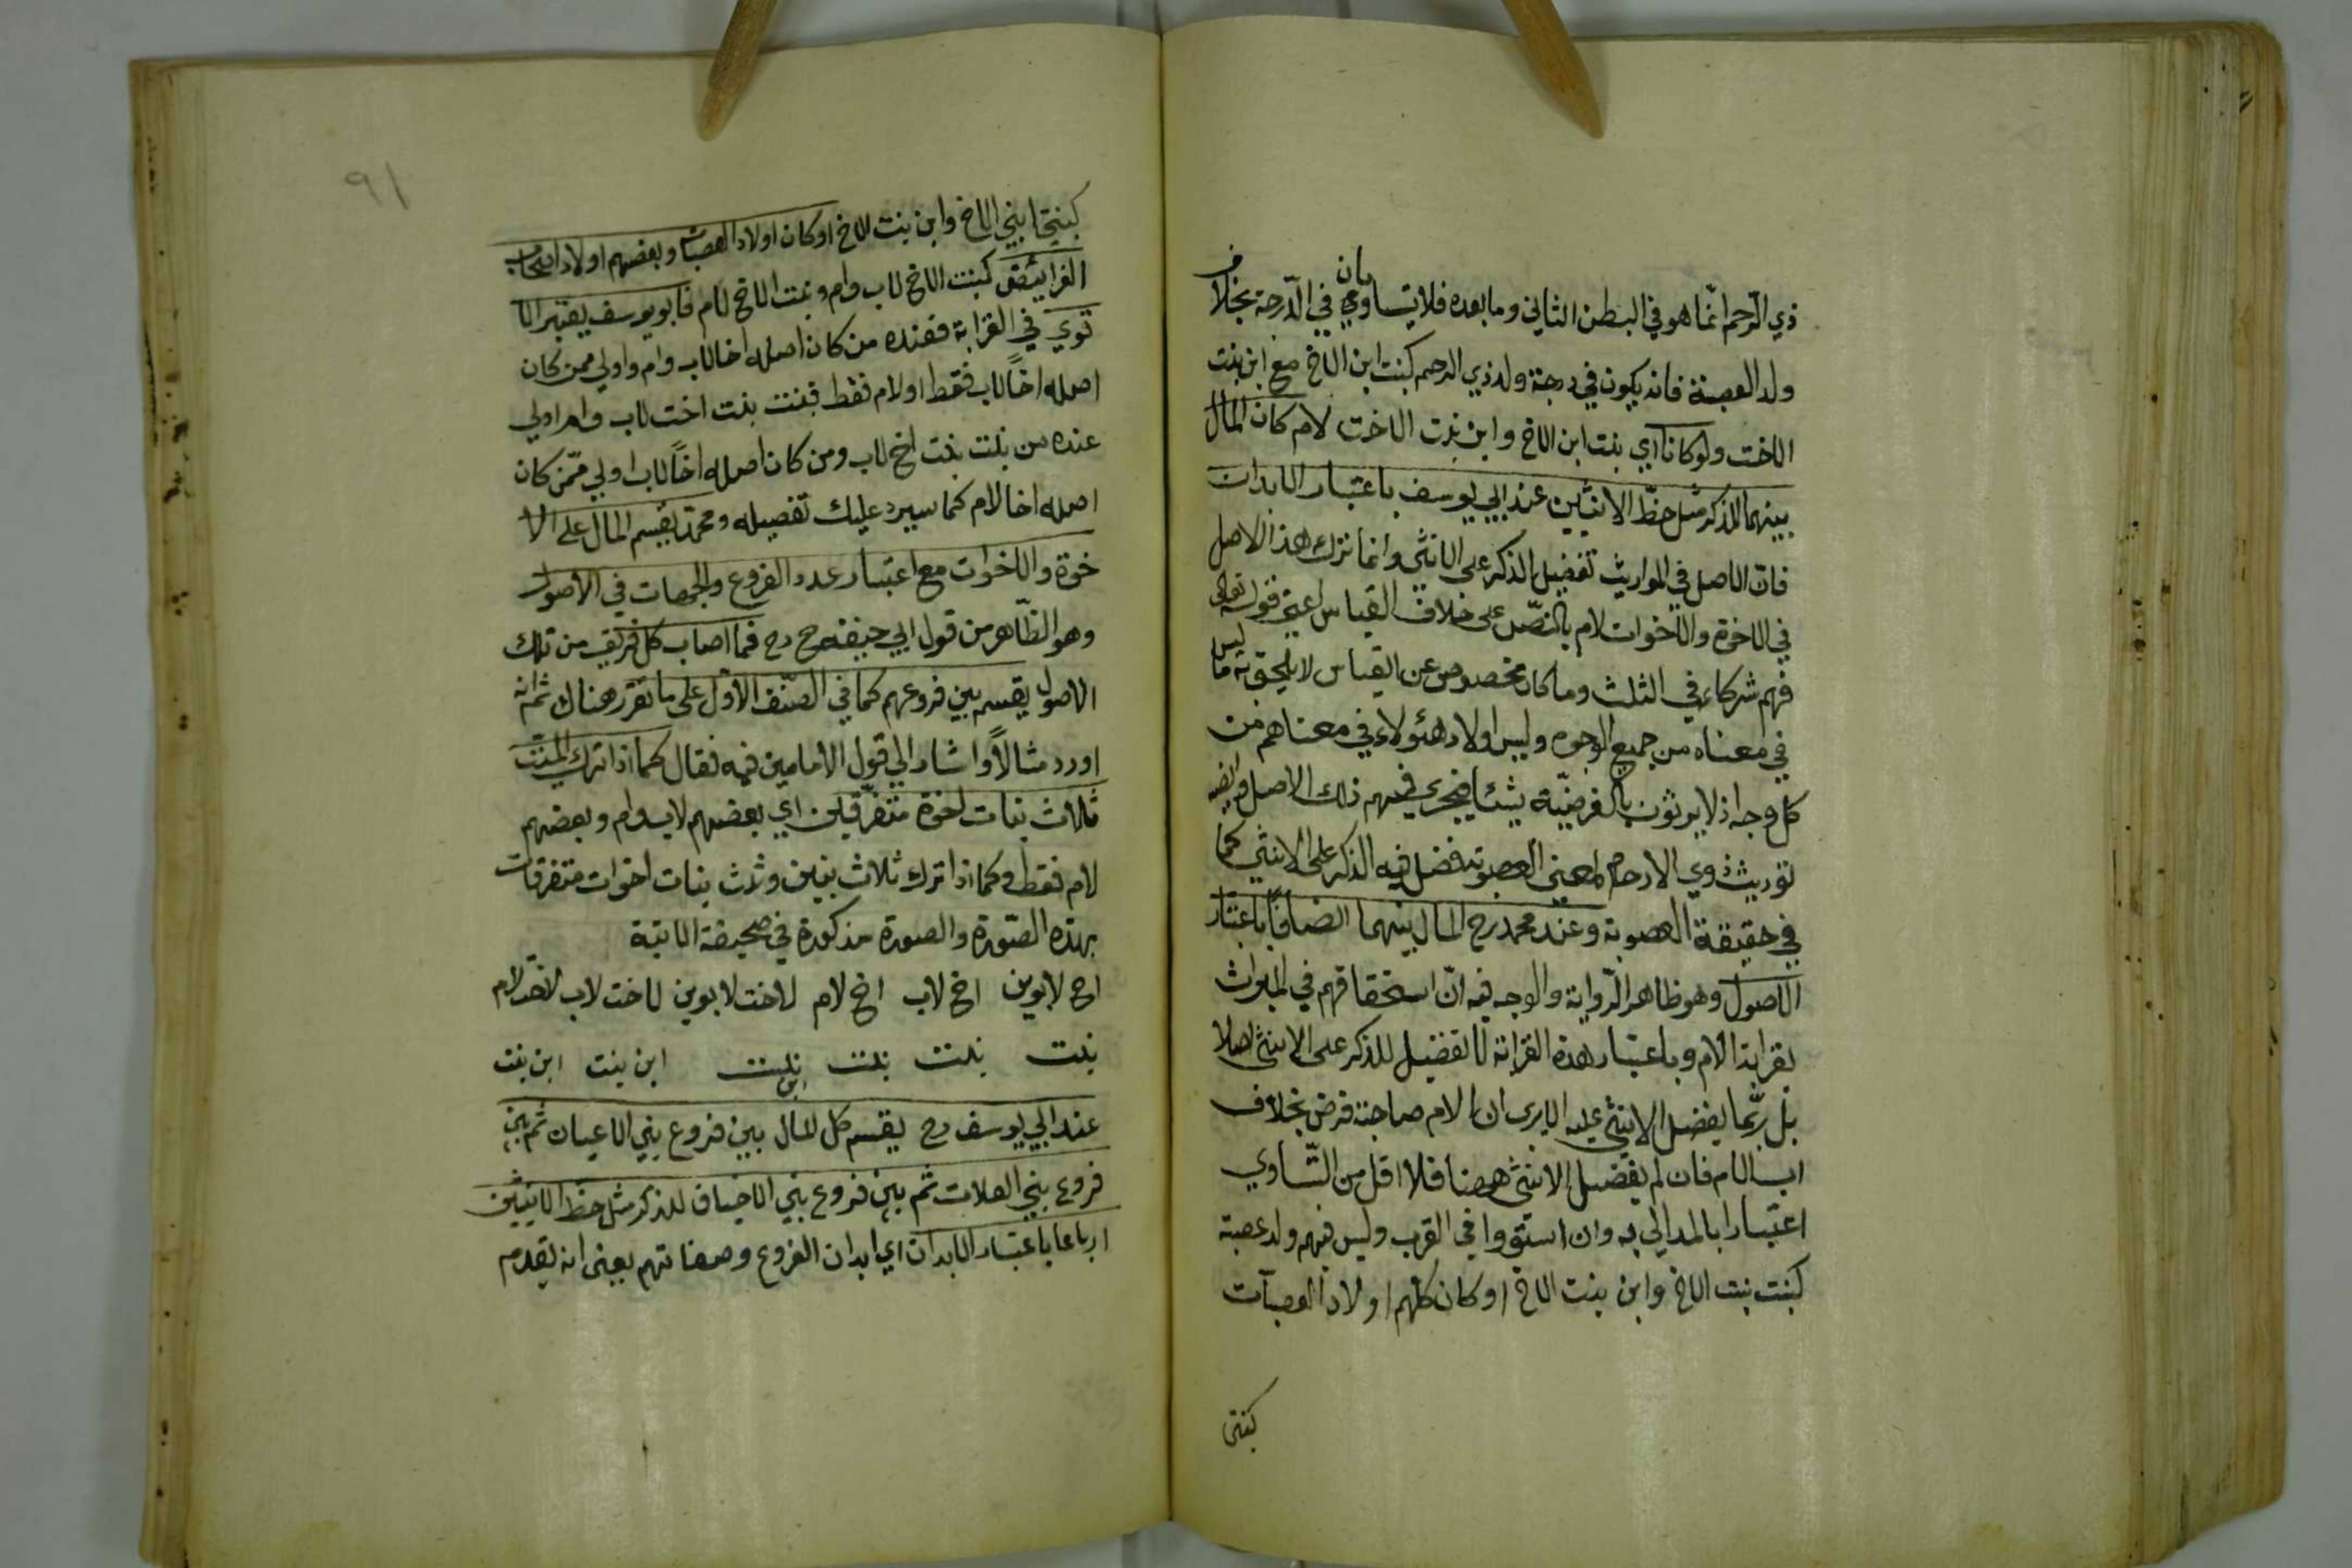 ذي الرحم انما هو في البطن الثاني وما بعده فلا يتساويان في الدرجة بخلاف
ولد العصبة فانه يكون في درجة ولد ذي الرحم كبنت ابن الاخ مع ابن بنت
الاخت ولو كانا اي بنت ابن الاخ وابن بنت الاخت لام كان المال
بينهما للذكر مثل حظ الانثيين عند ابي يوسف باعتبار الابدان
فان الاصل في المواريث تفضيل الذكر على الانثى وانما ترك هذا الاصل
في الاخوة والاخوات لام بالنص على خلاف القياس اعني قوله تعالى
فهم شركاء في الثلث وما كان مخصوص عن القياس لا يلحق به ما ليس
في معناه من جميع الوجوه وليس اولاد هئولاء في معناهم من
كل وجه اذ لا يرثون بالفرضية شيئا فيجري فيهم ذلك الاصل وايضا
توريث ذوي الارحام لمعنى العصوبة فيفضل فيه الذكر على الانثى كما
في حقيقة العصوبة وعند محمد رح المال بينهما انصافا باعتبار
الاصول وهو ظاهر الرواية والوجه فيه ان استحقاقهم في الميراث
بقرابة الام وباعتبار هذه القرابة لا تفضيل للذكر على الانثى اصلا
بل ربما يفضل الانثى عليه الا يرى ان الام صاحبة فرض بخلاف
اب الام فان لم يفضل الانثى ههنا فلا اقل من التساوي
اعتبارا بالمدلي به وان استووا في القرب وليس فيهم ولد عصبة
كبنت بنت الاخ وابن بنت الاخ او كان كلهم اولاد العصبات
كبنتي
٩١
كبنتي ابني الاخ وابن بنت الاخ او كان اولاد العصبات وبعضهم اولاد اصحاب
الفرايض كبنت الاخ لاب وام وبنت الاخ لام فابو يوسف يعتبر الا
قوي في القرابة فعنده من كان اصله اخا لاب وام اولى ممن كان
اصله اخا لاب فقط او لام فقط فبنت بنت اخت لاب وام اولى
عنده من بنت بنت اخ لاب ومن كان اصله اخا لاب اولى ممن كان
اصله اخا لام كما سيرد عليك تفصيله ومحمد يقسم المال على الا
خوة والاخوات مع اعتبار عدد الفروع والجهات في الاصول
وهو الظاهر من قول ابي حنيفه رح فما اصاب كل فريق من تلك
الاصول يقسم بين فروعهم كما في الصنف الاول على ما تقرر هناك ثم انه
اورد مثالا واشار الى قول الامامين فيه فقال كما اذا ترك الميت
ثلاث بنات اخوة متفرقين اي بعضهم لاب وام وبعضهم
لام فقط وكما اذا ترك ثلاث بنين وثلث بنات اخوات متفرقات
بهذه الصورة والصورة مذكورة في صحيفة الاتية
اخ لابوين اخ لاب اخ لام لاخت لابوين لاخت لاب لاخت لام
بنت بنت بنت ابن بنت ابن بنت ابن بنت
عند ابي يوسف رح يقسم كل المال بين فروع بني الاعيان ثم بين
فروع بني العلات ثم بين فروع بني الاخياف للذكر مثل حظ الانثيين
ارباعا باعتبار الابدان اي ابدان الفروع وصفاتهم يعني انه يقدم